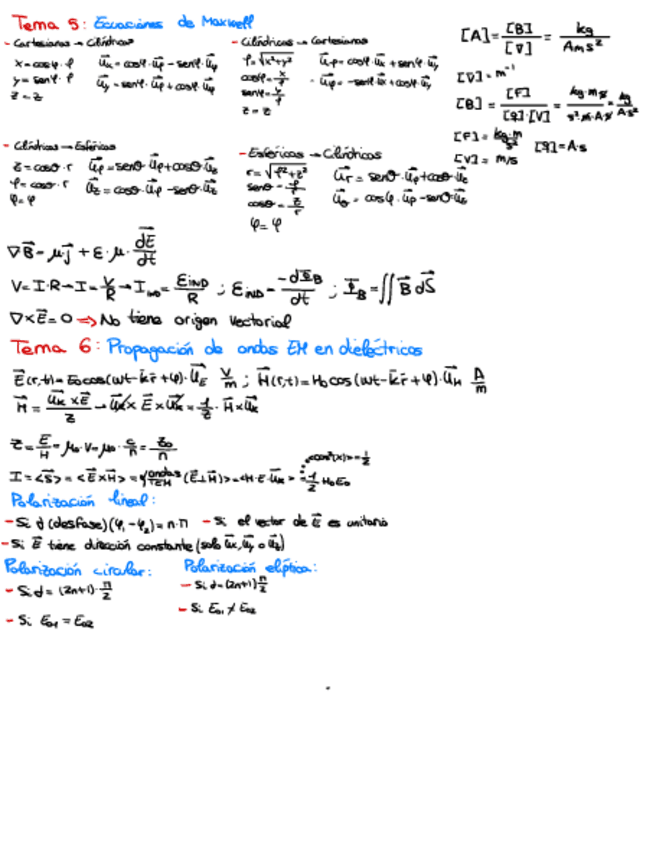 Tema 5: Ecuaciones de Maxwell
- Cartesianas → Cilíndricas
x = cosφ · ρ   u⃗x = cosφ · u⃗ρ - senφ · u⃗φ
y = senφ · ρ   u⃗y = senφ · u⃗ρ + cosφ · u⃗φ
z = z
- Cilíndricas → Cartesianas
ρ = √x²+y²   u⃗ρ = cosφ · u⃗x + senφ · u⃗y
cosφ = x/ρ   u⃗φ = -senφ · u⃗x + cosφ · u⃗y
senφ = y/ρ
z = z
[A] = [B]/[∇] = kg/Ams²
[∇] = m⁻¹
[B] = [F]/[q]·[V] = kg·m·s/s²·m·A·s = kg/A·s²
[F] = kg·m/s²   [q] = A·s
[V] = m/s
- Cilíndricas → Esféricas
z = cosθ · r   u⃗ρ = senθ · u⃗ρ + cosθ · u⃗z
ρ = cosθ · r   u⃗z = cosθ · u⃗ρ - senθ · u⃗z
φ = φ
- Esféricas → Cilíndricas
r = √ρ²+z²   u⃗r = senθ · u⃗ρ + cosθ · u⃗z
senθ = ρ/r   u⃗θ = cosφ · u⃗ρ - senθ · u⃗z
cosθ = z/r
φ = φ
∇B⃗ = μ·j⃗ + ε·μ· dE⃗/dt
V = I·R → I = V/R → I_IND = ε_IND/R ; ε_IND = -dΦ_B/dt ; Φ_B = ∬ B⃗ dS⃗
∇×E⃗ = 0 ⇒ No tiene origen vectorial
Tema 6: Propagación de ondas EM en dieléctricos
E⃗(r,t) = E₀cos(wt - k̄r̄ + φ) · u⃗E V/m ; H⃗(r,t) = H₀cos(wt - k̄r̄ + φ) · u⃗H A/m
H⃗ = u⃗k × E⃗/Z → u⃗k × E⃗ × u⃗k = 1/Z · H⃗ × u⃗k
Z = E/H = μ₀·v = μ₀· c/n = Z₀/n
<cos²(x)> = 1/2
I = <S⃗> = <E⃗×H⃗> = ondas TEM (E⃗⊥H⃗) = <H·E·u⃗k> = 1/2 H₀E₀
Polarización lineal:
- Si d (desfase) (φ₁ - φ₂) = n·π   - Si el vector de E⃗ es unitario
- Si E⃗ tiene dirección constante (solo u⃗x, u⃗y o u⃗z)
Polarización circular:   Polarización elíptica:
- Si d = (2n+1)· π/2   - Si d = (2n+1) π/2
- Si E₀₁ = E₀₂   - Si E₀₁ ≠ E₀₂